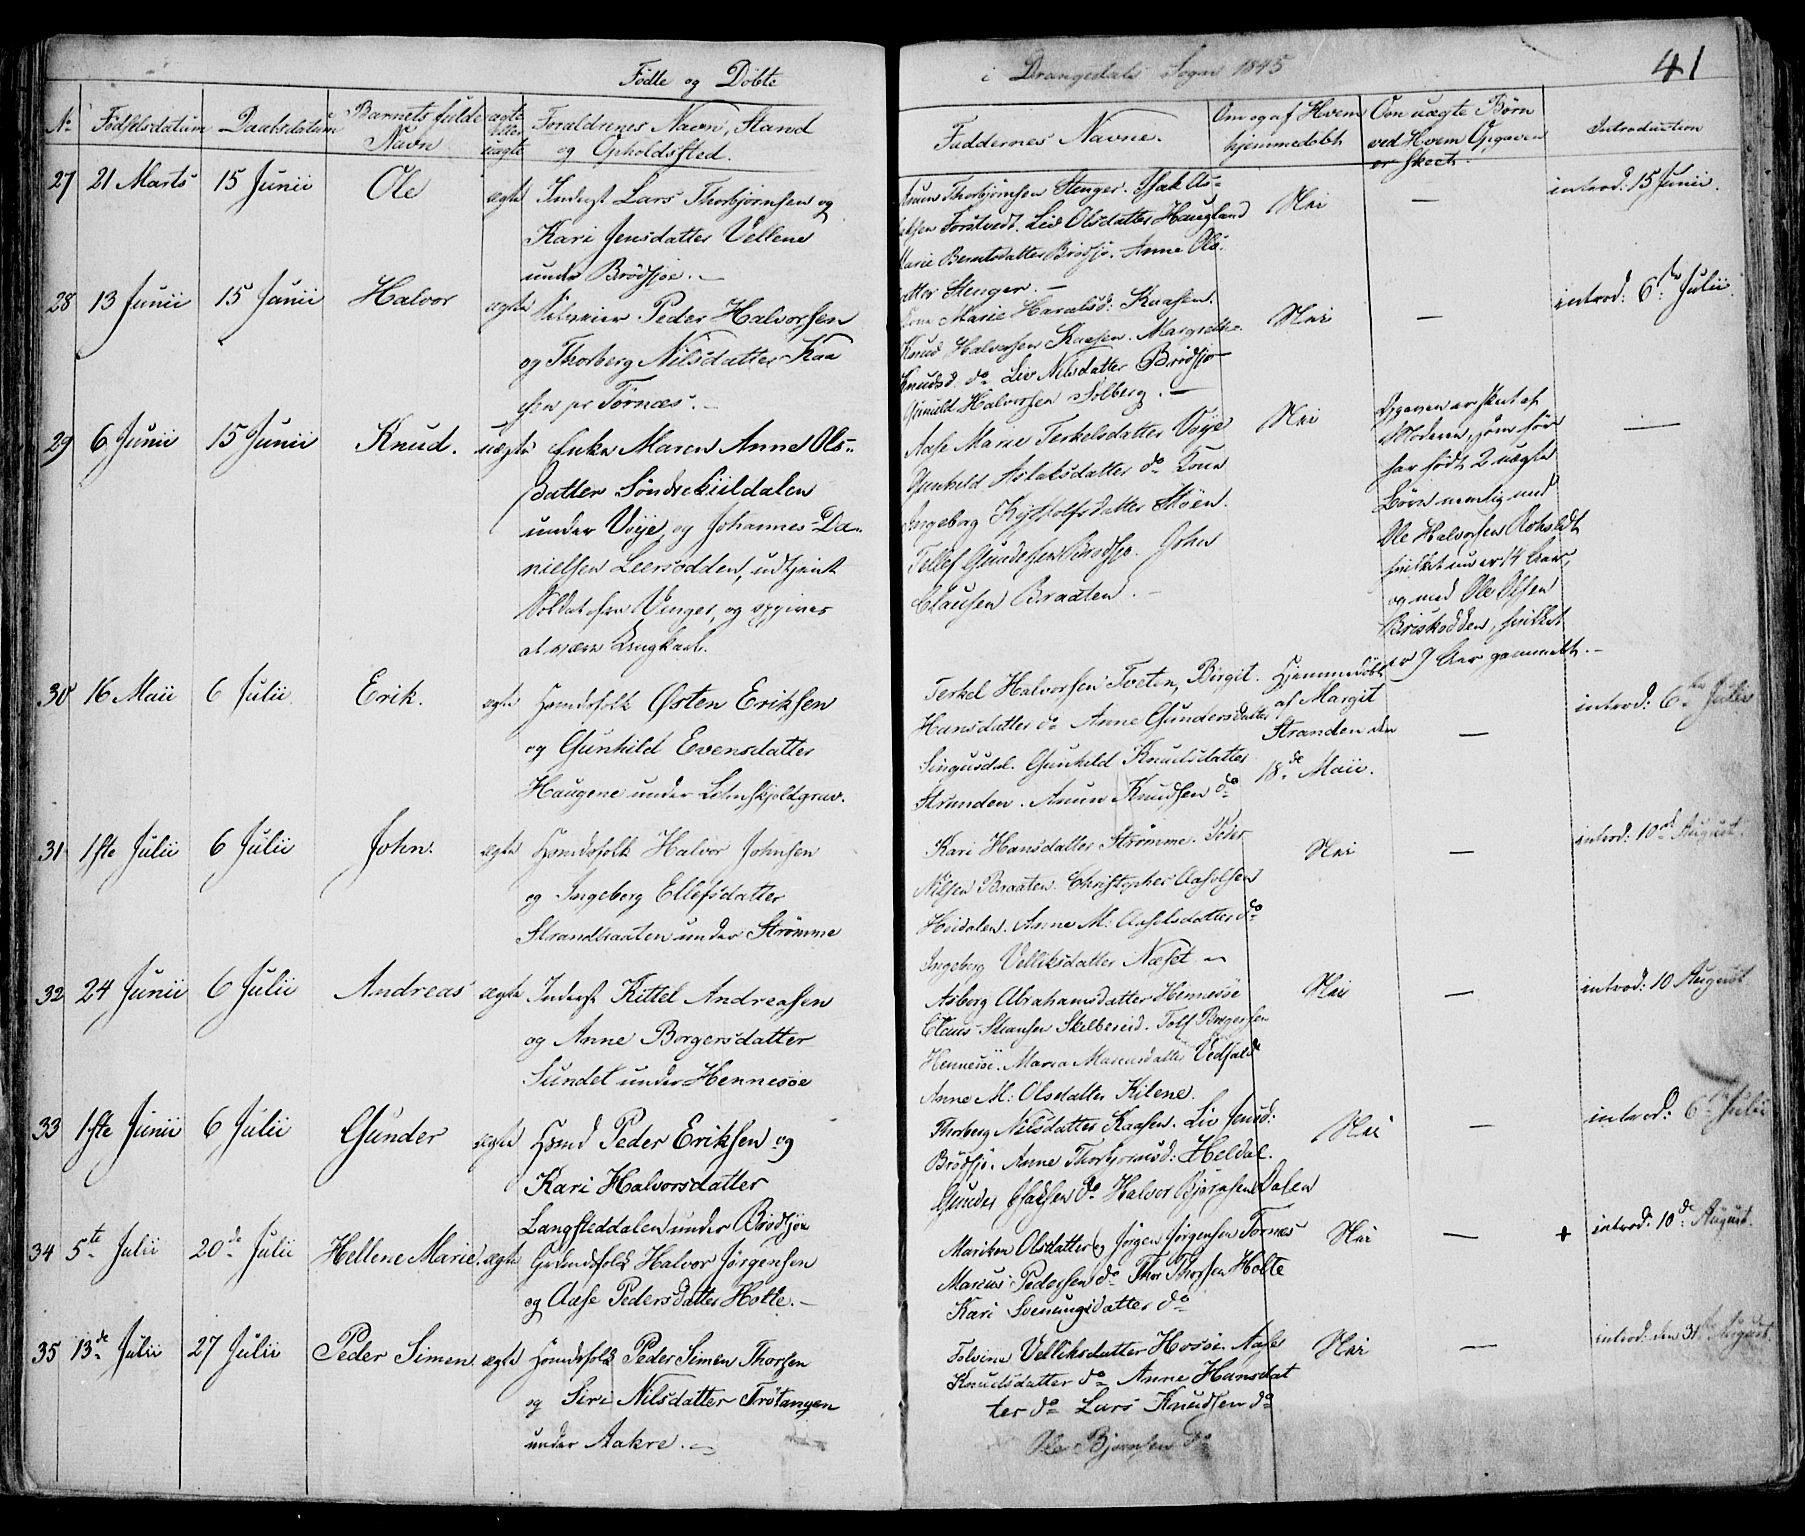 Fødte og Døbte
i Drangedals Sogn 1845
41
No
Fødselsdatum
Daabsdatum
Barnets fulde
Navn
ægte
eller
uægte
Forældrenes Navn, Stand
og Opholdssted.
Faddernes Navne.
Om og af Hvem
hjemmedøbt
Om uægte Børn
ved Hvem Opgaven
er skeet.
Introduction
27 21 Marts 15 Junii Ole ægte
Inderst Lars Thorbjørnsen og
Kari Jensdatter Vellene
under Brødsjøe.
Thorbjørnsen Stenger. Isak As-
Forstvedt. Liv Olsdatter Haugland
Marie Berntsdatter Brødsjø. Anne Ols-
datter Stenger.
Nei
—
introd: 15 Junii.
28 13 Junii 15 Junii Halvor ægte
Peder Halvorsen
og Thorberg Nilsdatter Kaa
sen pr Tørnæs.
Marie Haraldsd: Kaasen.
Knud Halvorsen Kaasen. Margrethe
Knudsd. do Liv Nilsdatter Brødsjø
Halvorsen Solberg.
Nei
—
introd: 6te Julii.
29 6 Junii 15 Junii Knud. uægte
Enke Maren Anne Ols-
datter Søndrekiildalen
under Voje, og Johannes Da-
nielsen Leersodden, udtjent
Soldat fra Vinger, og opgives
at være Ungkarl.
Aase Marie Terkelsdatter Voje
Gunhild Aslaksdatter do Tone
Ingeborg Skoen.
Tellef Gundersen Brødsjø. John
Clausen Braaten.
Nei
Opgaven er skeet af
Moderen, som før
har født 2 uægte
Børn nemlig med
Ole Halvorsen
hvilket nu er 14 Aar,
og med Ole Olsen
Briskodden, hvilket
er 9 Aar gammelt.
—
30 16 Maii 6 Julii Erik. ægte
Huusfolk Østen Eriksen
og Gunhild Evensdatter
Haugene under
Terkel Halvorsen Tveten, Birgit
Hansdatter do Anne Gundersdatter
Singusdal. Gunhild Knudsdatter
Stranden. Knudsen do
Hjemmedøbt
af Margit
Stranden den
18de Maii.
—
introd: 6te Julii
31 1ste Julii 6 Julii John. ægte
Huusfolk Halvor Johnsen
og Ingeborg Ellefsdatter
Strandbraaten under Strømme
Kari Hansdatter Strømme. Peder
Nilsen Braaten. Christopher Aslelsen
Heidalen. Anne M: do
Ingeborg Velliksdatter Næset
Nei
—
introd: 10de August.
32 24 Junii 6 Julii Andreas ægte
Inderst Kittel Andreasen
og Anne Borgersdatter
Sundet under Hennesøe
Asberg Abrahamsdatter Hennesøe
Claus Skelbereid. Tolf Børgersen
Hennesøe. Maria
Anne M: Olsdatter Kilene.
Nei
—
introd: 10 August
33 1ste Junii 6 Julii Gunder ægte
Huusd Peder Eriksen og
Kari Halvorsdatter
Langsteddalen under Brødsjøe
Thorberg Nilsdatter Kaasen. Liv Jensd:
Brødsjø. Anne Thorbjørnsd: Heldal.
Gunder Isaksen do Halvor Bjørnsen Dalen
Nei
—
introd: 6te Julii
34 5te Julii 20de Julii Hellene Marie. ægte
Huusfolk Halvor Jørgensen
og Aase Pedersdatter Holte.
Mariken Olsdatter og Jørgen Jørgensen Tørnæs
Marcus Pedersen do Thor Thorsen Holte
Kari Sveinungsdatter do
Nei
—
+ introd: 10de August.
35 13de Julii 27 Julii Peder Simen ægte
Huusfolk Peder Simen Thorsen
og Siri Nilsdatter Trøtangen
under Aakre.
Tolvine Velliksdatter Hosøe. Aase
Knudsdatter do Anne Hansdat
ter do Lars Knudsen do
Ole Bjørnsen do
Nei
—
introd: den 31te August.